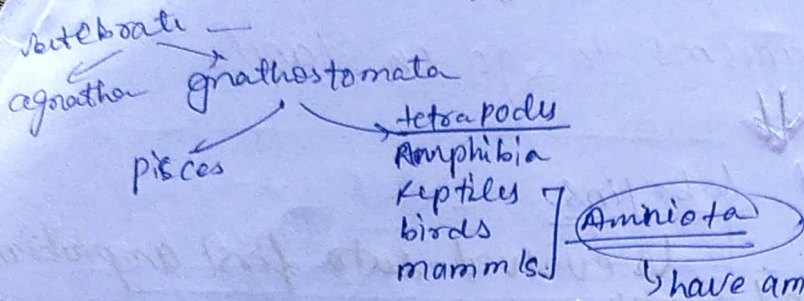 vertebrati —
agnatha gnathostomata
pisces
tetrapody
Amphibia
reptiles
birds
mammls
Amniota
↳ have am